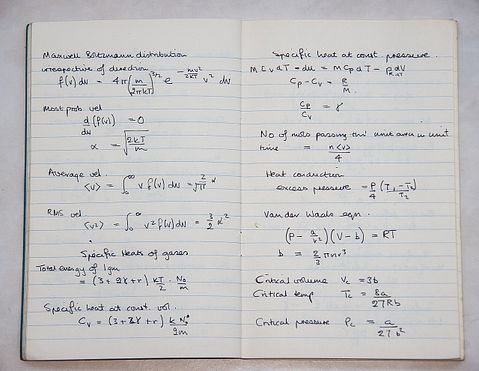 Maxwell Boltzmann distribution
irrespective of direction
f(v) dv = 4π (m/2πkT)^3/2 e^-mv²/2kT v² dv
Most prob vel
d/dv (f(v)) = 0
α = √(2kT/m)
Average vel.
<v> = ∫₀^∞ v f(v) dv = 2/√π α
RMS vel
<v²> = ∫₀^∞ v² f(v) dv = 3/2 α²
Specific Heats of gases
Total energy of 1gm
= (3 + 2γ + r) kT/2 · N₀/m
Specific heat at const. vol.
Cv = (3 + 2γ + r) k N₀/2m
Specific heat at const pressure.
m Cv dT = du = m Cp dT - p dV
Cp - Cv = R/M
Cp/Cv = γ
No of mols passing thro' unit area in unit
time = n<v>/4
Heat conduction
excess pressure = P/4 (T₁ - T₂)/T₂
Van der Waals eqn.
(P - a/v²)(V - b) = RT
b = 2/3 π n r³
Critical volume Vc = 3b
Critical temp Tc = 8a/27Rb
Critical pressure Pc = a/27b²